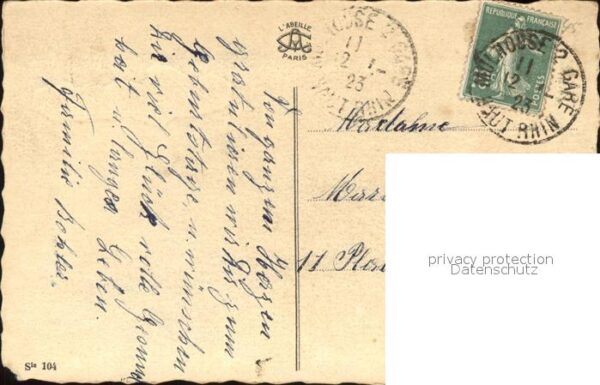 L'ABEILLE
PARIS
MULHOUSE 2 GARE
11
12 1-
23
HAUT RHIN
REPUBLIQUE FRANÇAISE
POSTES
MULHOUSE 2 GARE
11
12 1-
23
HAUT RHIN
Von ganzem Herzen
gratulieren wir Ihnen zum
Geburtstage u. wünschen
viel Glück volle Gesund
heit u. langes Leben.
Familie Bohler
Madame
11
privacy protection
Datenschutz
Ste 104